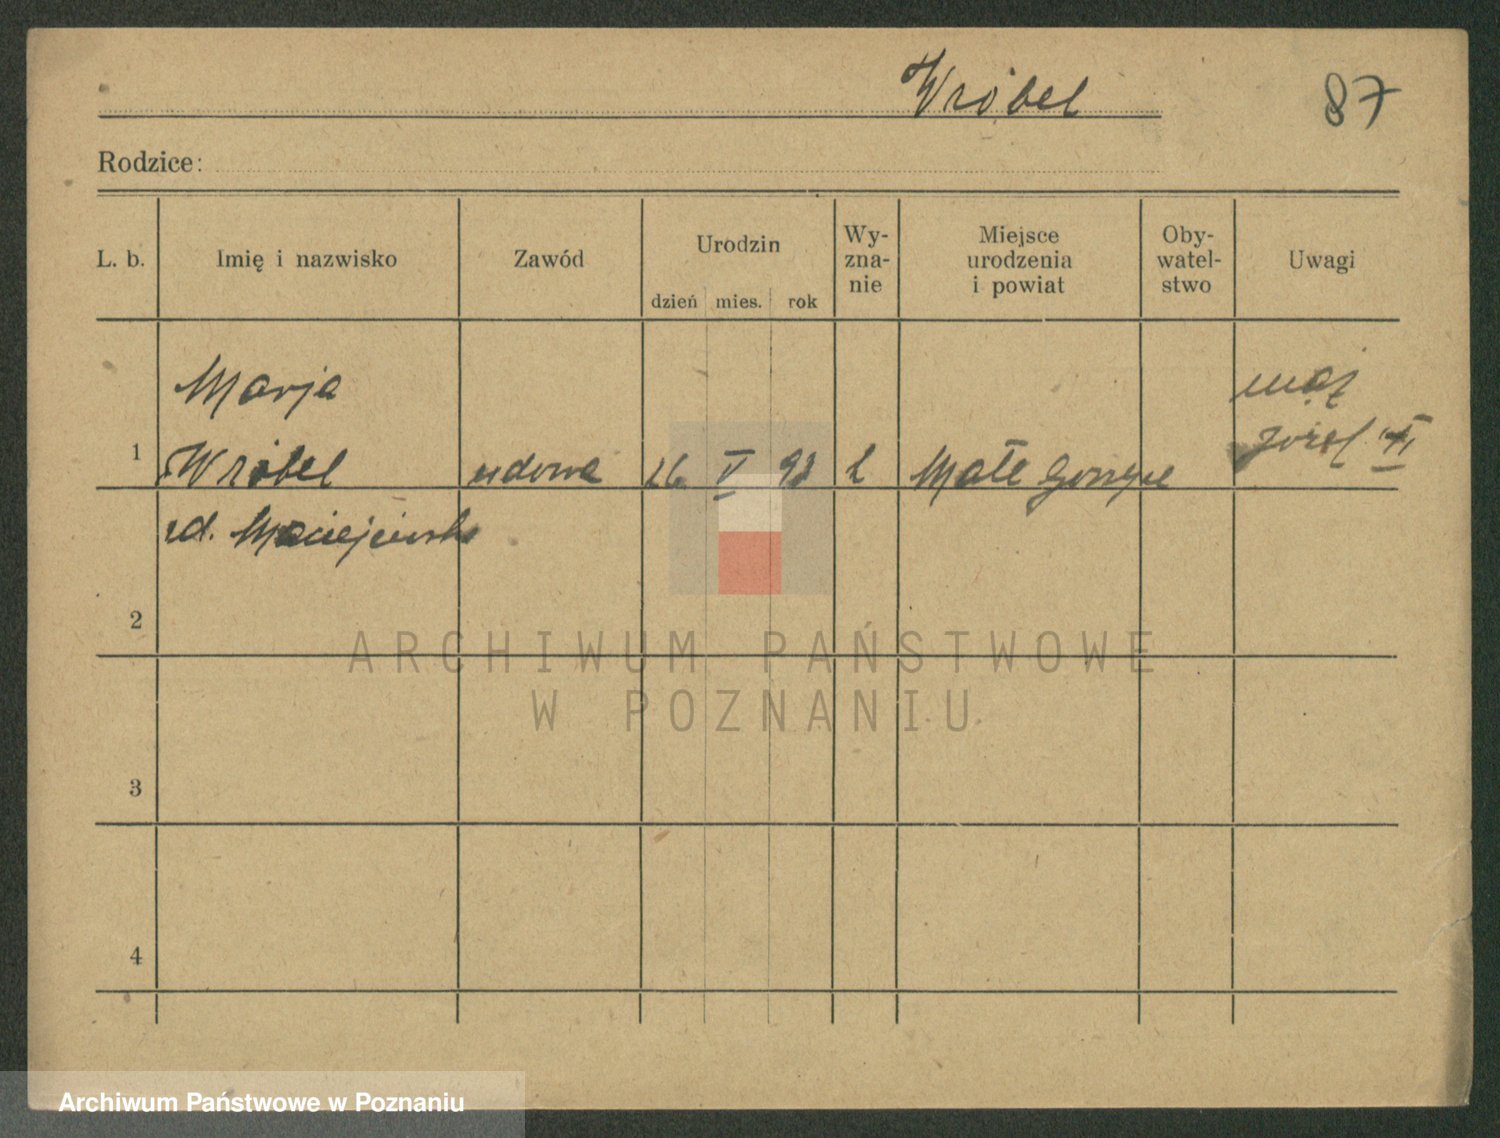 Wróbel
87
Rodzice:
L. b. Imię i nazwisko Zawód Urodzin dzień mies. rok Wy-zna-nie Miejsce urodzenia i powiat Oby-watel-stwo Uwagi
Marja
mąż
1 Wróbel wdowa 26 V 93 k Małe Józef
zd. Maciejewska
2
ARCHIWUM PAŃSTWOWE
W POZNANIU
3
4
Archiwum Państwowe w Poznaniu